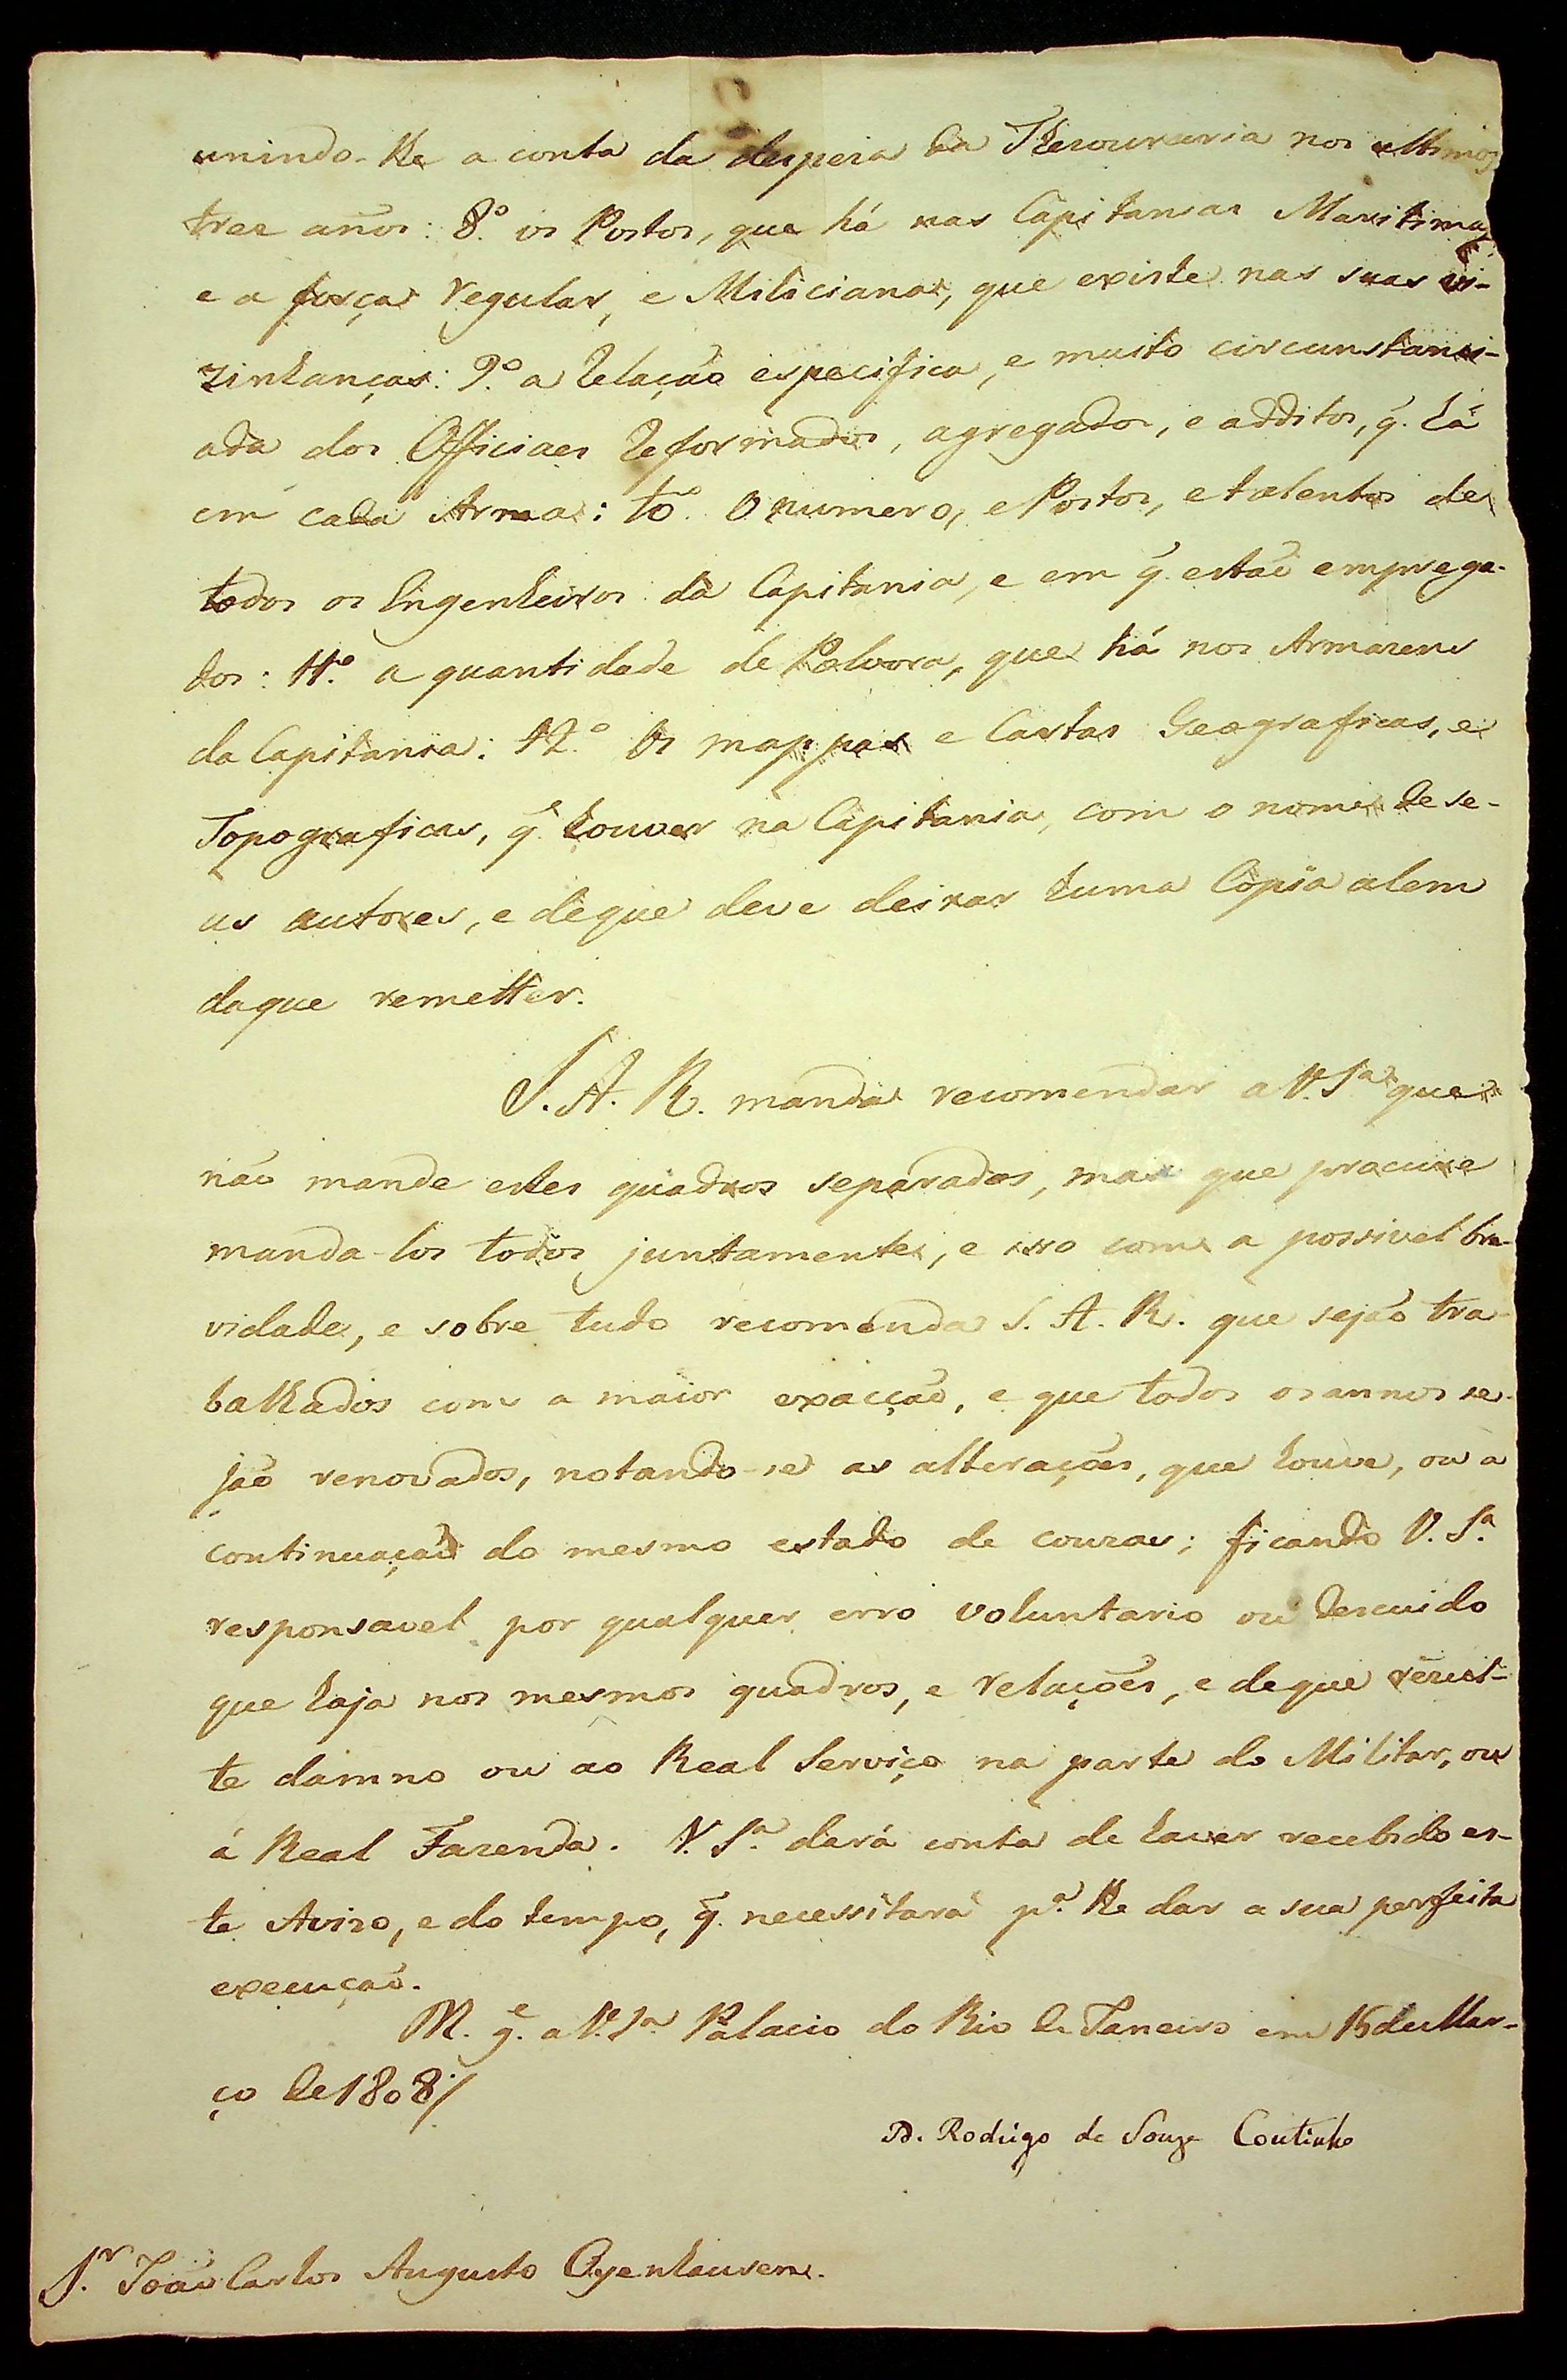 unindo-lhe a conta da despeza da Thesouraria nos ultimos
trez años: 8.º os Postos, que há nas Capitanias Maritimas,
e a força regular, e Miliciana, que existe nas suas vi-
zinhanças: 9.º a Relação especifica, e muito circunstanci-
ada dos Officiaes Reformados, agregados, e additos, q̃. há
em cada Arma: 10.º O numero, e Postos, e talentos de
todos os Engenheiros da Capitania, e em q̃. estaõ emprega-
dos: 11.º a quantidade de Polvora, que há nos Armazens
da Capitania: 12.º Os mappas e Cartas Geograficas, e
Topograficas, q̃. houver na Capitania, com o nome de se-
us autores, e deque deve deixar huma Copia alem
daque remetter.
S. A. R. manda recomendar a V. S.ª que
não mande estes quadros separados, mas que procure
manda-los todos juntamente, e isso com a possivel bre-
vidade, e sobre tudo recomenda S. A. R. que sejaõ tra-
balhados com a maior exacçaõ, e que todos os annos se-
jaõ renovados, notando-se as alterações, que houve, ou a
continuaçaõ do mesmo estado de couzas; ficando V. S.ª
responsavel por qualquer erro voluntario ou descuido
que haja nos mesmos quadros, e relações, e deque rezul-
te damno ou ao Real Serviço na parte do Militar, ou
á Real Fazenda. V. S.ª dará conta de haver recebido es-
te Avizo, e do tempo, q̃. necessitará p.ª lhe dar a sua perfeita
execuçaõ.
D.s g.e a V. S.ª Palacio do Rio de Janeiro em 15 de Mar-
ço de 1808 ./
D. Rodrigo de Souza Coutinho
S.r Joaõ Carlos Augusto Oyenhausen.